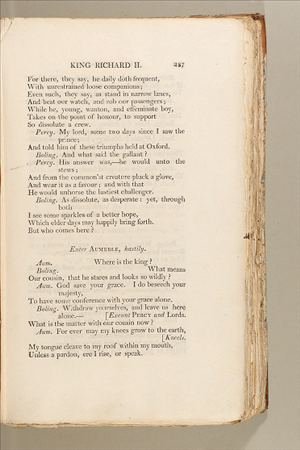 KING RICHARD II. 247
For there, they say, he daily doth frequent,
With unrestrained loose companions;
Even such, they say, as stand in narrow lanes,
And beat our watch, and rob our passengers;
While he, young, wanton, and effeminate boy,
Takes on the point of honour, to support
So dissolute a crew.
Percy. My lord, some two days since I saw the
prince;
And told him of these triumphs held at Oxford.
Boling. And what said the gallant?
Percy. His answer was,—he would unto the
stews;
And from the common'st creature pluck a glove,
And wear it as a favour; and with that
He would unhorse the lustiest challenger.
Boling. As dissolute, as desperate: yet, through
both
I see some sparkles of a better hope,
Which elder days may happily bring forth.
But who comes here?
Enter AUMERLE, hastily.
Aum. Where is the king?
Boling. What means
Our cousin, that he stares and looks so wildly?
Aum. God save your grace. I do beseech your
majesty,
To have some conference with your grace alone.
Boling. Withdraw yourselves, and leave us here
alone.— [Exeunt PERCY and Lords.
What is the matter with our cousin now?
Aum. For ever may my knees grow to the earth,
[Kneels.
My tongue cleave to my roof within my mouth,
Unless a pardon, ere I rise, or speak.